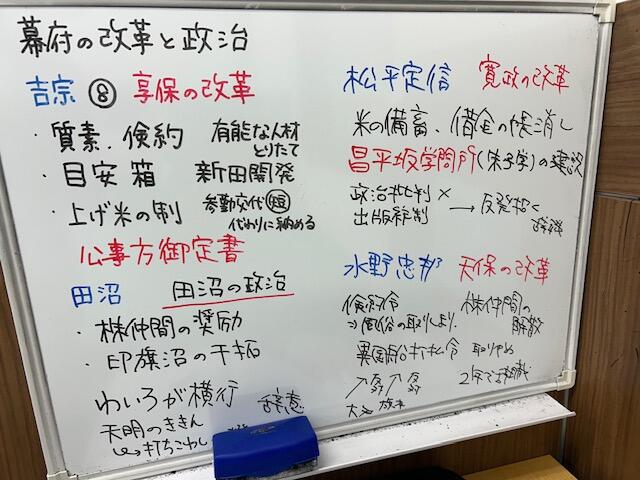 幕府の改革と政治
吉宗 ⑧ 享保の改革
・質素、倹約 有能な人材
とりたて
・目安箱 新田開発
・上げ米の制 参勤交代短
代わりに納める
公事方御定書
田沼 田沼の政治
・株仲間の奨励
・印旗沼の干拓
わいろが横行
天明のききん
↳打ちこわし
辞意
松平定信 寛政の改革
米の備畜、借金の帳消し
昌平坂学問所(朱子学)の建設
政治批判×
出版 → 反発
水野忠邦 天保の改革
倹約令 株仲間の
⇒風俗の取りしまり. 解散
異国船打払令 取りやめ
2年で